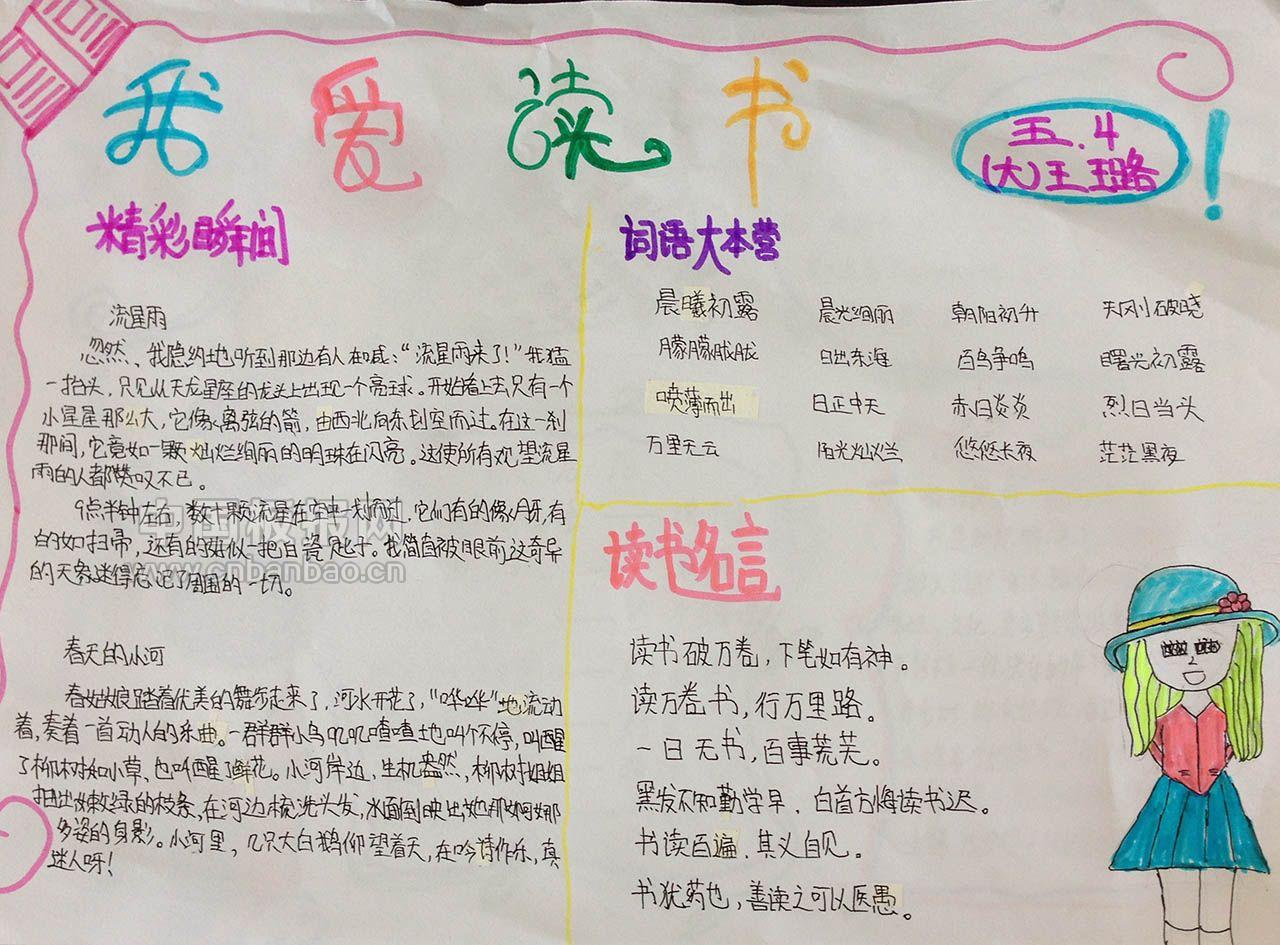 我爱读书
五.4
(大)王璐
!
精彩瞬间
流星雨
忽然、我隐约地听到那边有人在喊:“流星雨来了!”我猛
一抬头,只见从天龙星座的龙头上出现一个亮球。开始看上去只有一个
小星星那么大,它像离弦的箭,由西北向东划空而过。在这一刹
那间,它竟如一颗灿烂绚丽的明珠在闪亮。这使所有观望流星
雨的人都赞叹不已。
9点半钟左右,数十颗流星在空中一划而过,它们有的像月牙,有
的如扫帚,还有的疑似一把白瓷匙子。我简直被眼前这奇异
的天象迷得忘记了周围的一切。
春天的小河
春姑娘踏着优美的舞步走来了,河水开花了,“哗哗”地流动
着,奏着一首动人的乐曲。一群群小鸟叽叽喳喳土也叫个不停,叫醒
了柳树和小草、也叫醒了鲜花。小河岸边,生机盎然,柳树姐姐
抽出嫩绿的枝条,在河边梳洗头发,水面倒映出她那婀娜
多姿的身影。小河里,几只大白鹅仰望着天,在吟诗作乐,真
迷人呀!
词语大本营
晨曦初露 晨光绚丽 朝阳初升 天刚破晓
朦朦胧胧 日出东海 百鸟争鸣 曙光初露
喷薄而出 日正中天 赤日炎炎 烈日当头
万里无云 阳光灿烂 悠悠长夜 茫茫黑夜
读书名言
读书破万卷,下笔如有神。
读万卷书,行万里路。
一日无书,百事荒芜。
黑发不知勤学早,白首方悔读书迟。
书读百遍,其义自见。
书犹药也,善读之可以医愚。
中国板报网
www.cnbanbao.cn